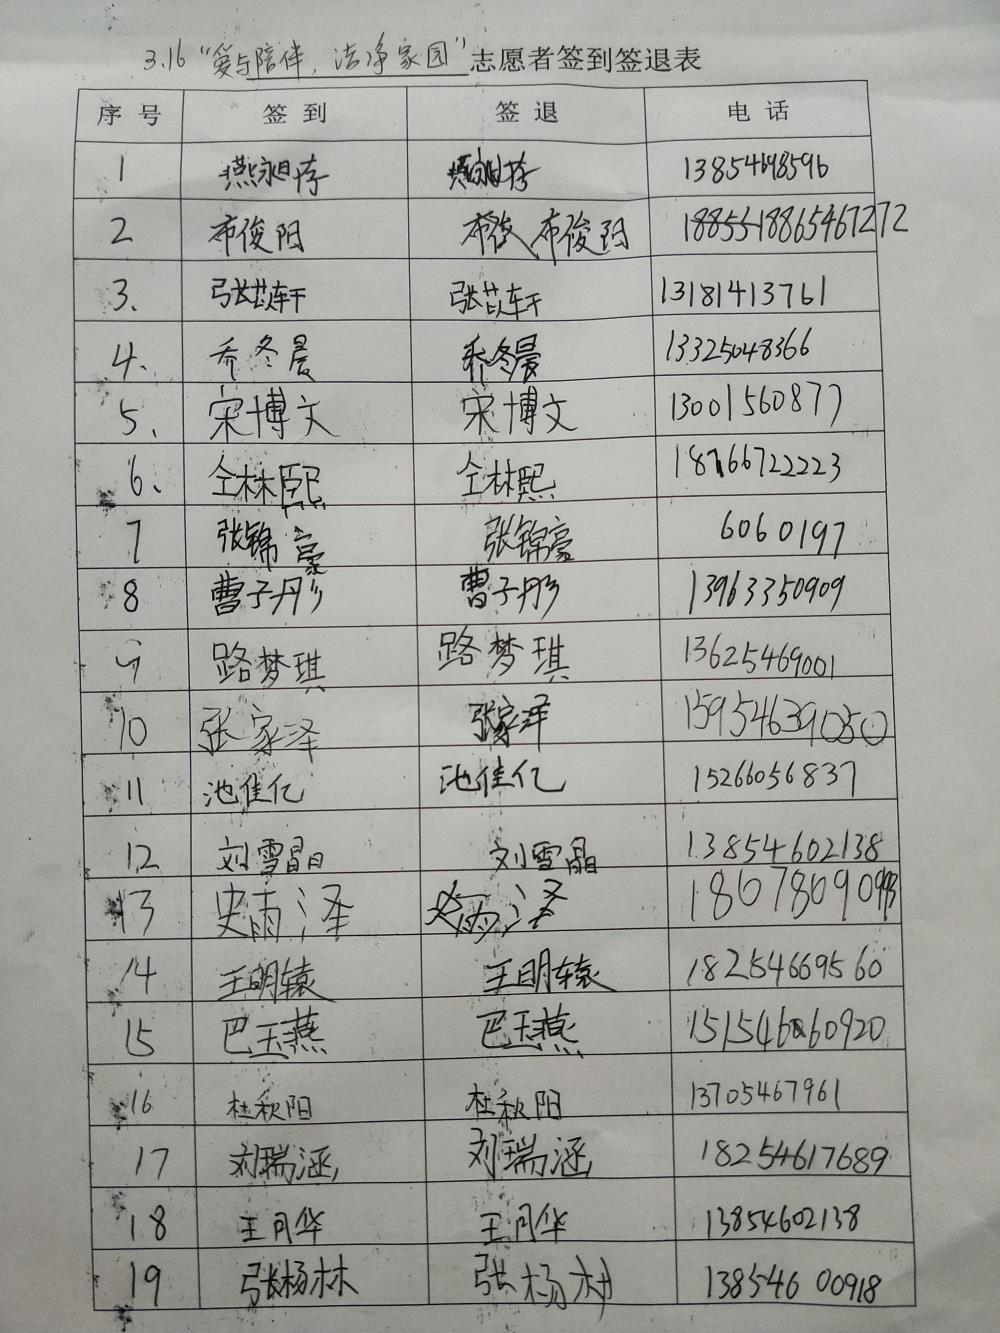 3.16 "爱与陪伴，洁净家园" 志愿者签到签退表
序号 签到 签退 电话
1 13854698596
2 布俊阳 布俊阳
3、 张苡轩 张苡轩 13181413761
4. 乔冬晨 乔冬晨 13325048366
5、 宋博文 宋博文 13001560877
6、 仝林熙 仝林熙 18766722223
7 张锦豪 张锦豪 6060197
8 曹子彤 曹子彤 13963350909
9 路梦琪 路梦琪 13625469001
10 张家泽 张家泽 15954639050
11 池佳亿 池佳亿 15266056837
12 刘雪晶 刘雪晶 13854602138
13 史雨泽 史雨泽
14 王明辕 王明辕 18254669560
15 巴玉燕 巴玉燕
16 杜秋阳 杜秋阳 13705467961
17 刘瑞涵 刘瑞涵 18254617689
18 王月华 王月华 13854602138
19 张杨林 张杨林 13854600918